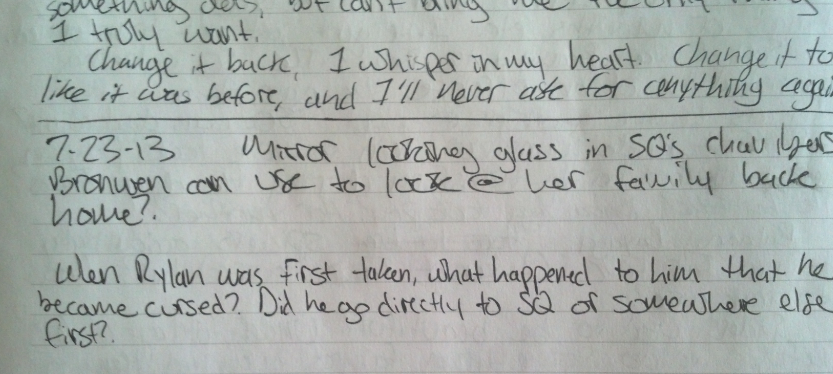 something
I truly want.
Change it back, I whisper in my heart. Change it to
like it was before, and I'll never ask for anything again
7-23-13 Mirror looking glass in SQ's chambers
Bronwen can use to look @ her family back
home?.
When Rylan was first taken, what happened to him that he
became cursed? Did he go directly to SQ or somewhere else
first?